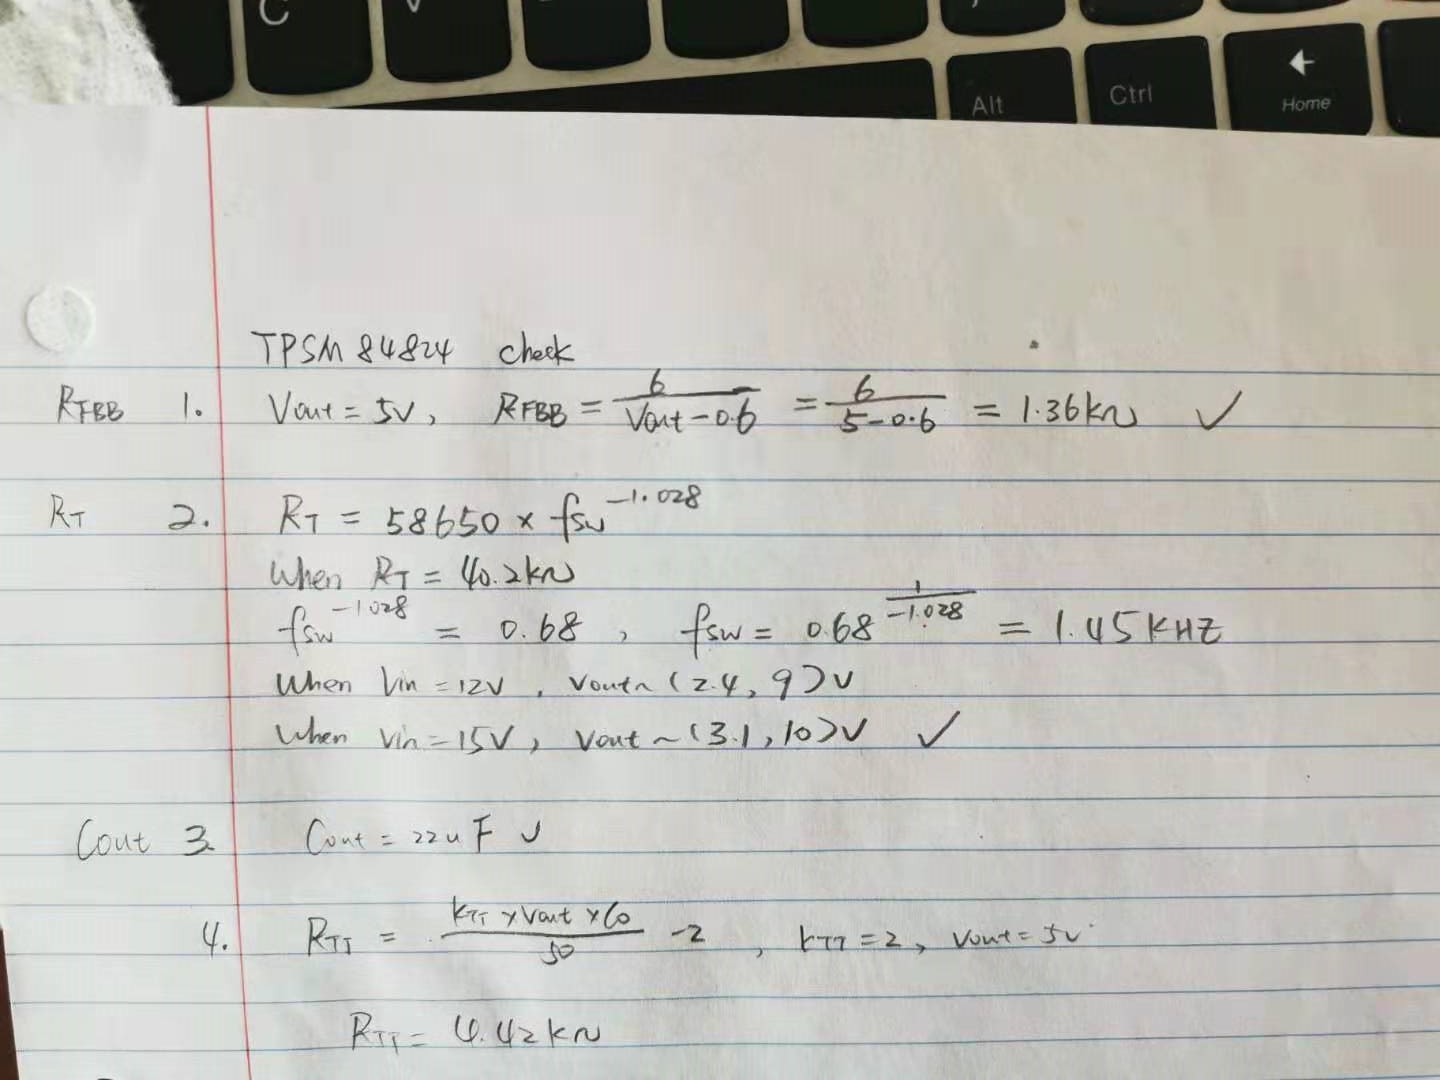 C V
Alt Ctrl Home
TPSM84824 check
RFBB 1. Vout = 5V, RFBB = 6/(Vout-0.6) = 6/(5-0.6) = 1.36kΩ ✓
RT 2. RT = 58650 × fsw^-1.028
When RT = 40.2kΩ
fsw^-1.028 = 0.68, fsw = 0.68^(1/-1.028) = 1.45KHZ
When Vin = 12V, Vout~(2.4, 9)V
When Vin = 15V, Vout~(3.1, 10)V ✓
Cout 3. Cout = 22uF ✓
4. RTT = (KTT × Vout × Co)/50 -2, KTT = 2, Vout = 5V
RTT = 4.42kΩ